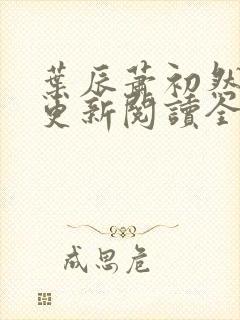 葉辰蕭初然
更新閱讀全
成思危